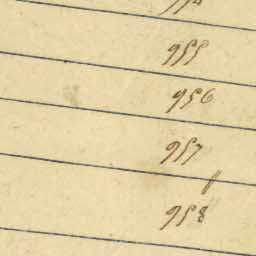 955
956
957
958